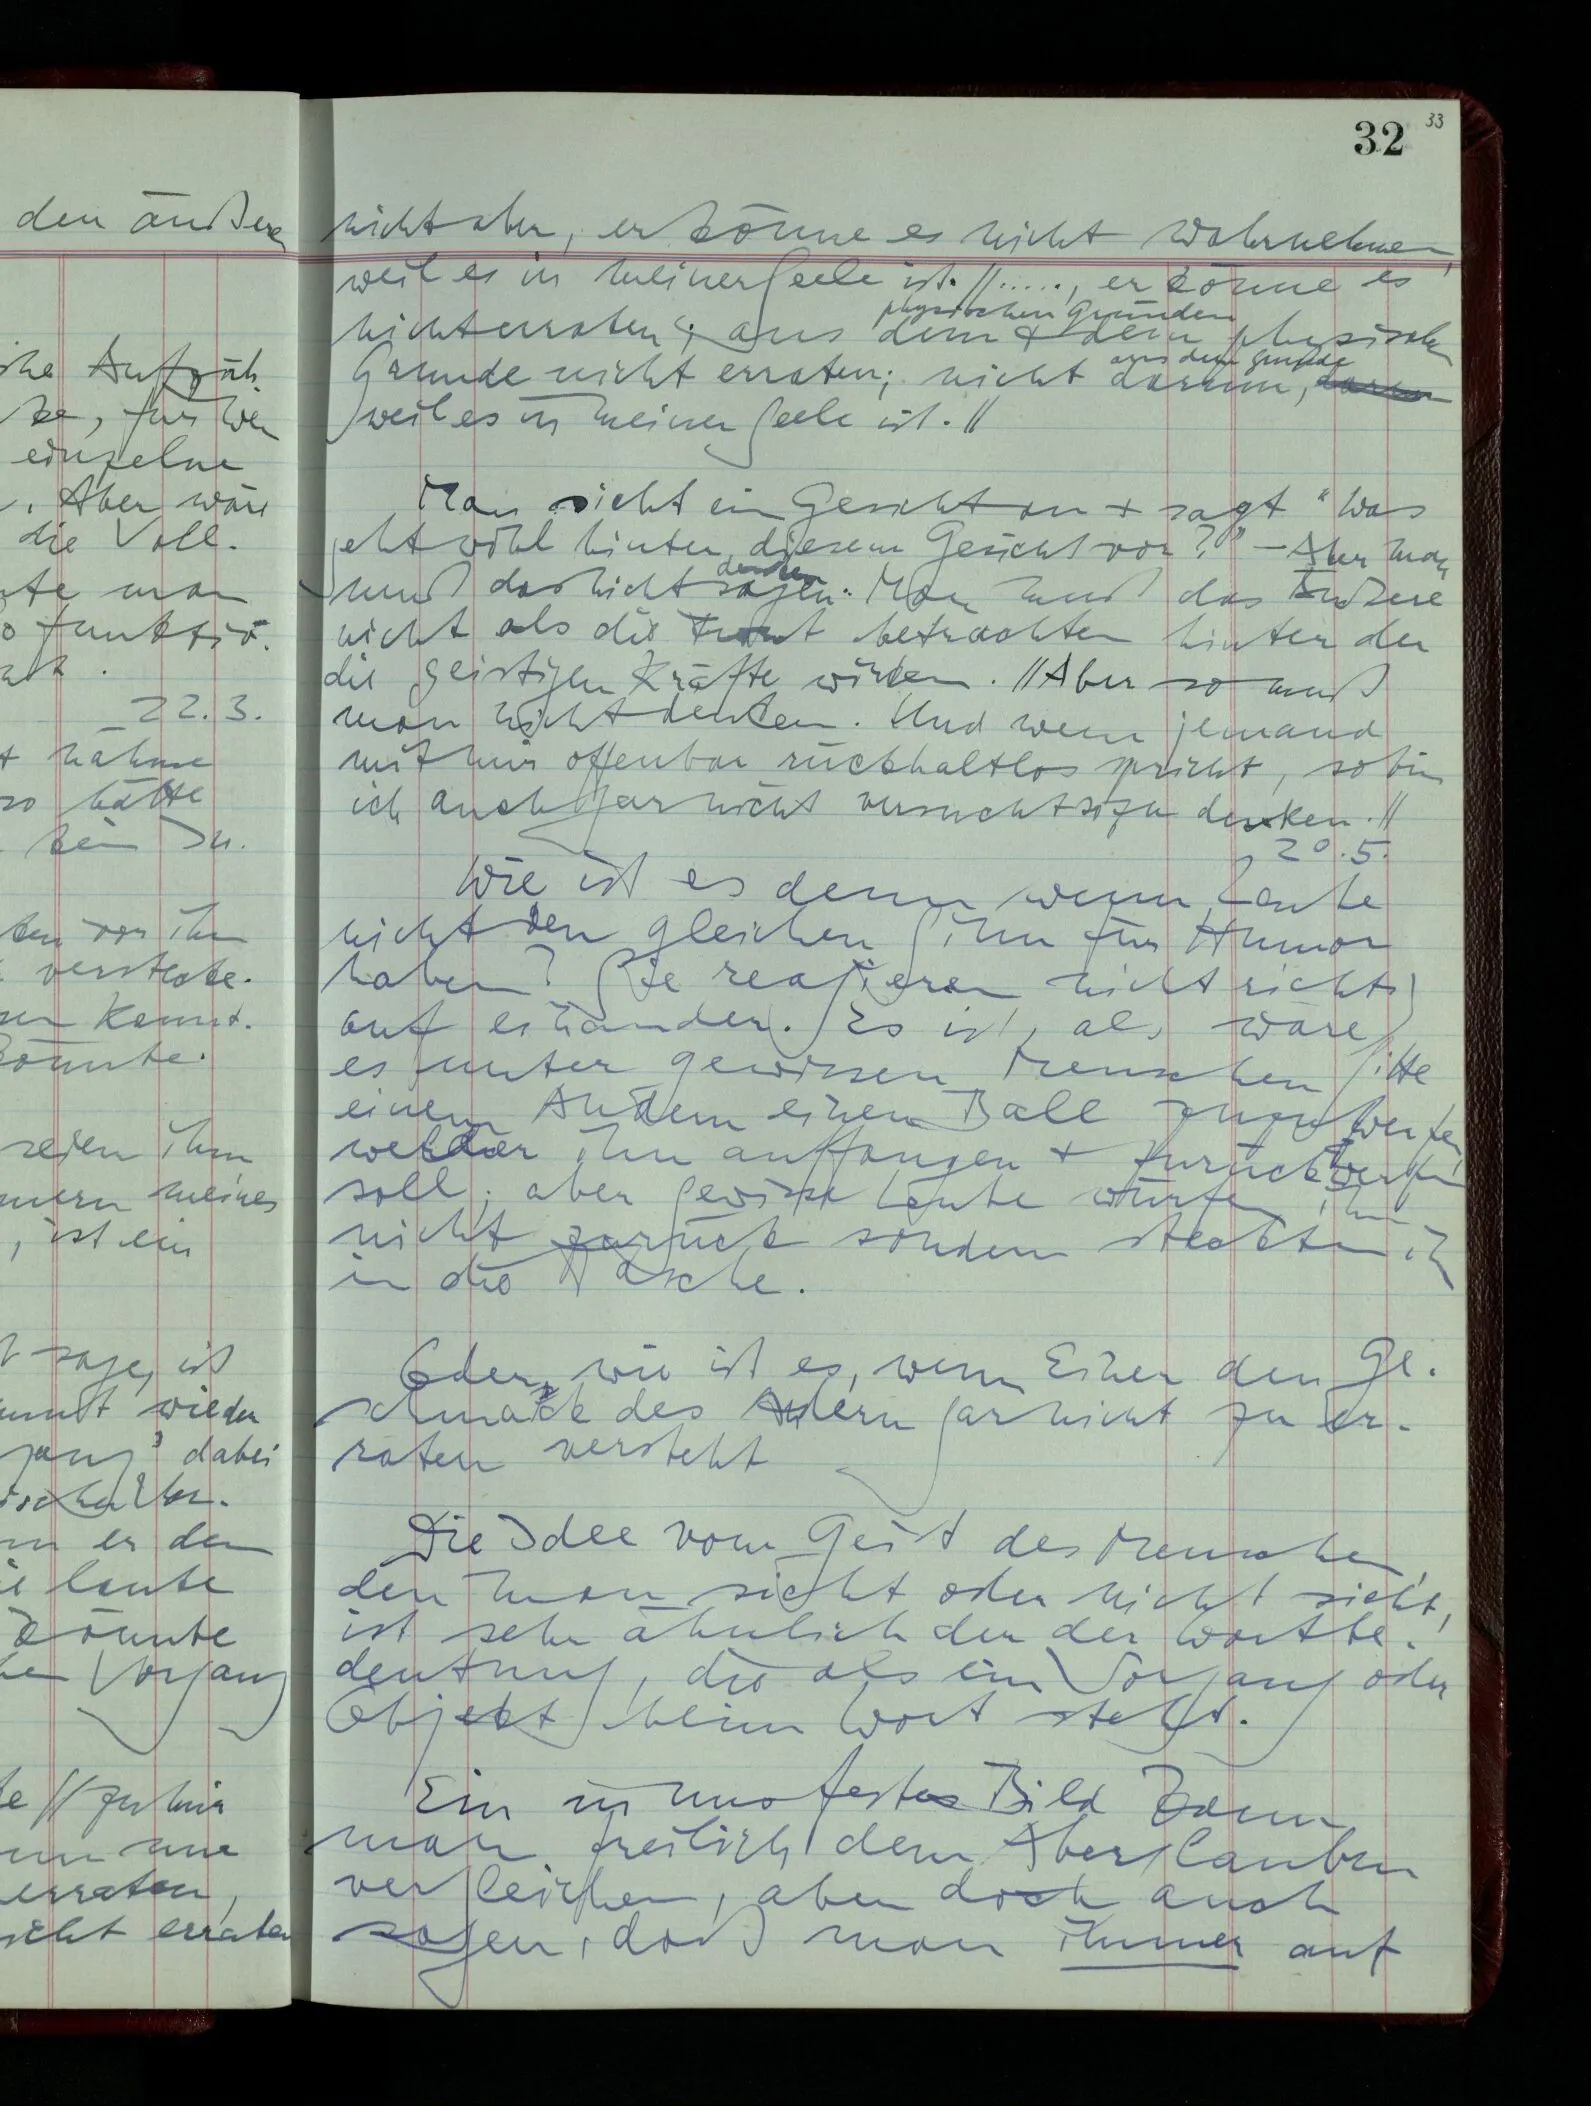 den äußere
ihe Aufzäh-
einzelne
. Aber wäre
die Voll-
te man
funktio-
22.3.
nähme
so hätte
kein Du.
ten vor ihm
verstecke.
kennt.
könnte.
seien ihm
meines
, ist ein
sage, ist
wieder
gang' dabei
er den
laute
könnte
Vorgang
// für mir
erraten,
nicht erraten
32
33
nicht aber, er könne es nicht wahrnehmen,
weil es in meiner Seele ist. // ....., er könne es
physischen Gründen
nicht erraten; aus dem & dem physischen
Grunde nicht erraten; nicht darum,
aus dem Grunde
weil es in meiner Seele ist. //
Man sieht ein Gesicht an & sagt "Was
geht wohl hinter diesem Gesicht vor?" – Aber man
denken
muß das nicht sagen. Man muß das Äußere
nicht als die Front betrachten hinter der
die geistigen Kräfte wirken. // Aber so muß
man nicht denken. Und wenn jemand
mit mir offenbar rückhaltlos spricht, so bin
ich auch gar nicht versucht so zu denken. //
20.5.
Wie ist es denn wenn Leute
nicht den gleichen Sinn für Humor
haben? Sie reagieren nicht richtig
auf einander. Es ist, als wäre
es unter gewissen Menschen Sitte
einem Andern einen Ball zuzuwerfen,
welcher ihn auffangen & zurückwerfen
soll; aber gewisse Leute würfen ihn
nicht zurück sondern steckten ihn
in die Tasche.
Oder, wie ist es, wenn Einer den Ge-
schmack des Andern gar nicht zu er-
raten versteht
Die Idee vom Geist des Menschen,
den man sieht oder nicht sieht,
ist sehr ähnlich der der Wortbe-
deutung, die als ein Vorgang oder
Objekt beim Wort steht.
Ein in uns festes Bild kann
man freilich dem Aberglauben
vergleichen, aber doch auch
sagen, daß man immer auf